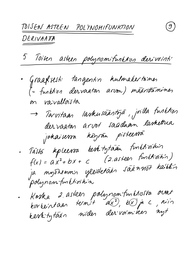 TOISEN ASTEEN POLYNOMIFUNKTION
DERIVAATTA
5 Toisen asteen polynomifunktion derivointi
• Graafisesti tangentin kulmakertoimen
(= funktion derivaatan arvon) määrittäminen
on vaivallista
→ Tarvitaan laskusääntöjä, joilla funktion
derivaatan arvot saadaan laskettua
jokaisessa käyrän pisteessä
• Tässä kappaleessa keskitytään funktioihin
f(x) = ax² + bx + c (2. asteen funktioihin)
ja myöhemmin yleistetään säännöt kaikkiin
polynomifunktioihin
• Koska 2. asteen polynomifunktiossa ovat
korkeintaan termit ax², bx ja c, niin
keskitytään niiden derivoimiseen nyt